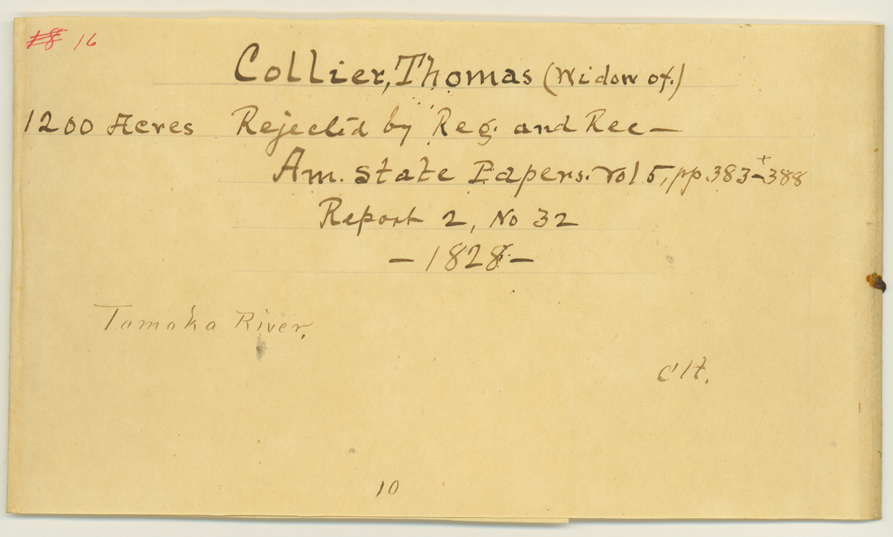 #8 16
Collier, Thomas (Widow of.)
1200 Acres Rejected by Reg. and Rec —
Am. State Papers. Vol 5, pp 383 + 388
Report 2, No 32
— 1828 —
Tomoka River.
10